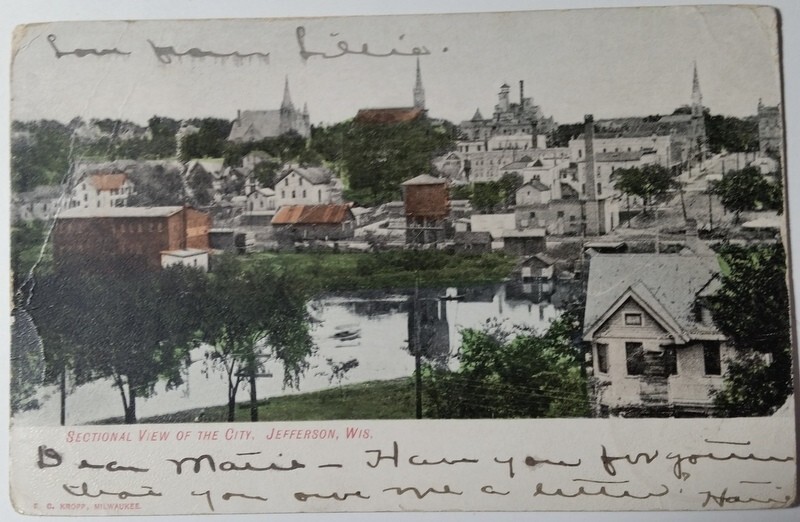 Love from Lillie.
SECTIONAL VIEW OF THE CITY. JEFFERSON, WIS.
Dear Marie – Have you forgotten
that you owe me a letter?
E. C. KROPP, MILWAUKEE.